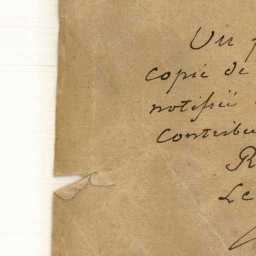 Vu p
copie de
notifié
Contribu
R
Le